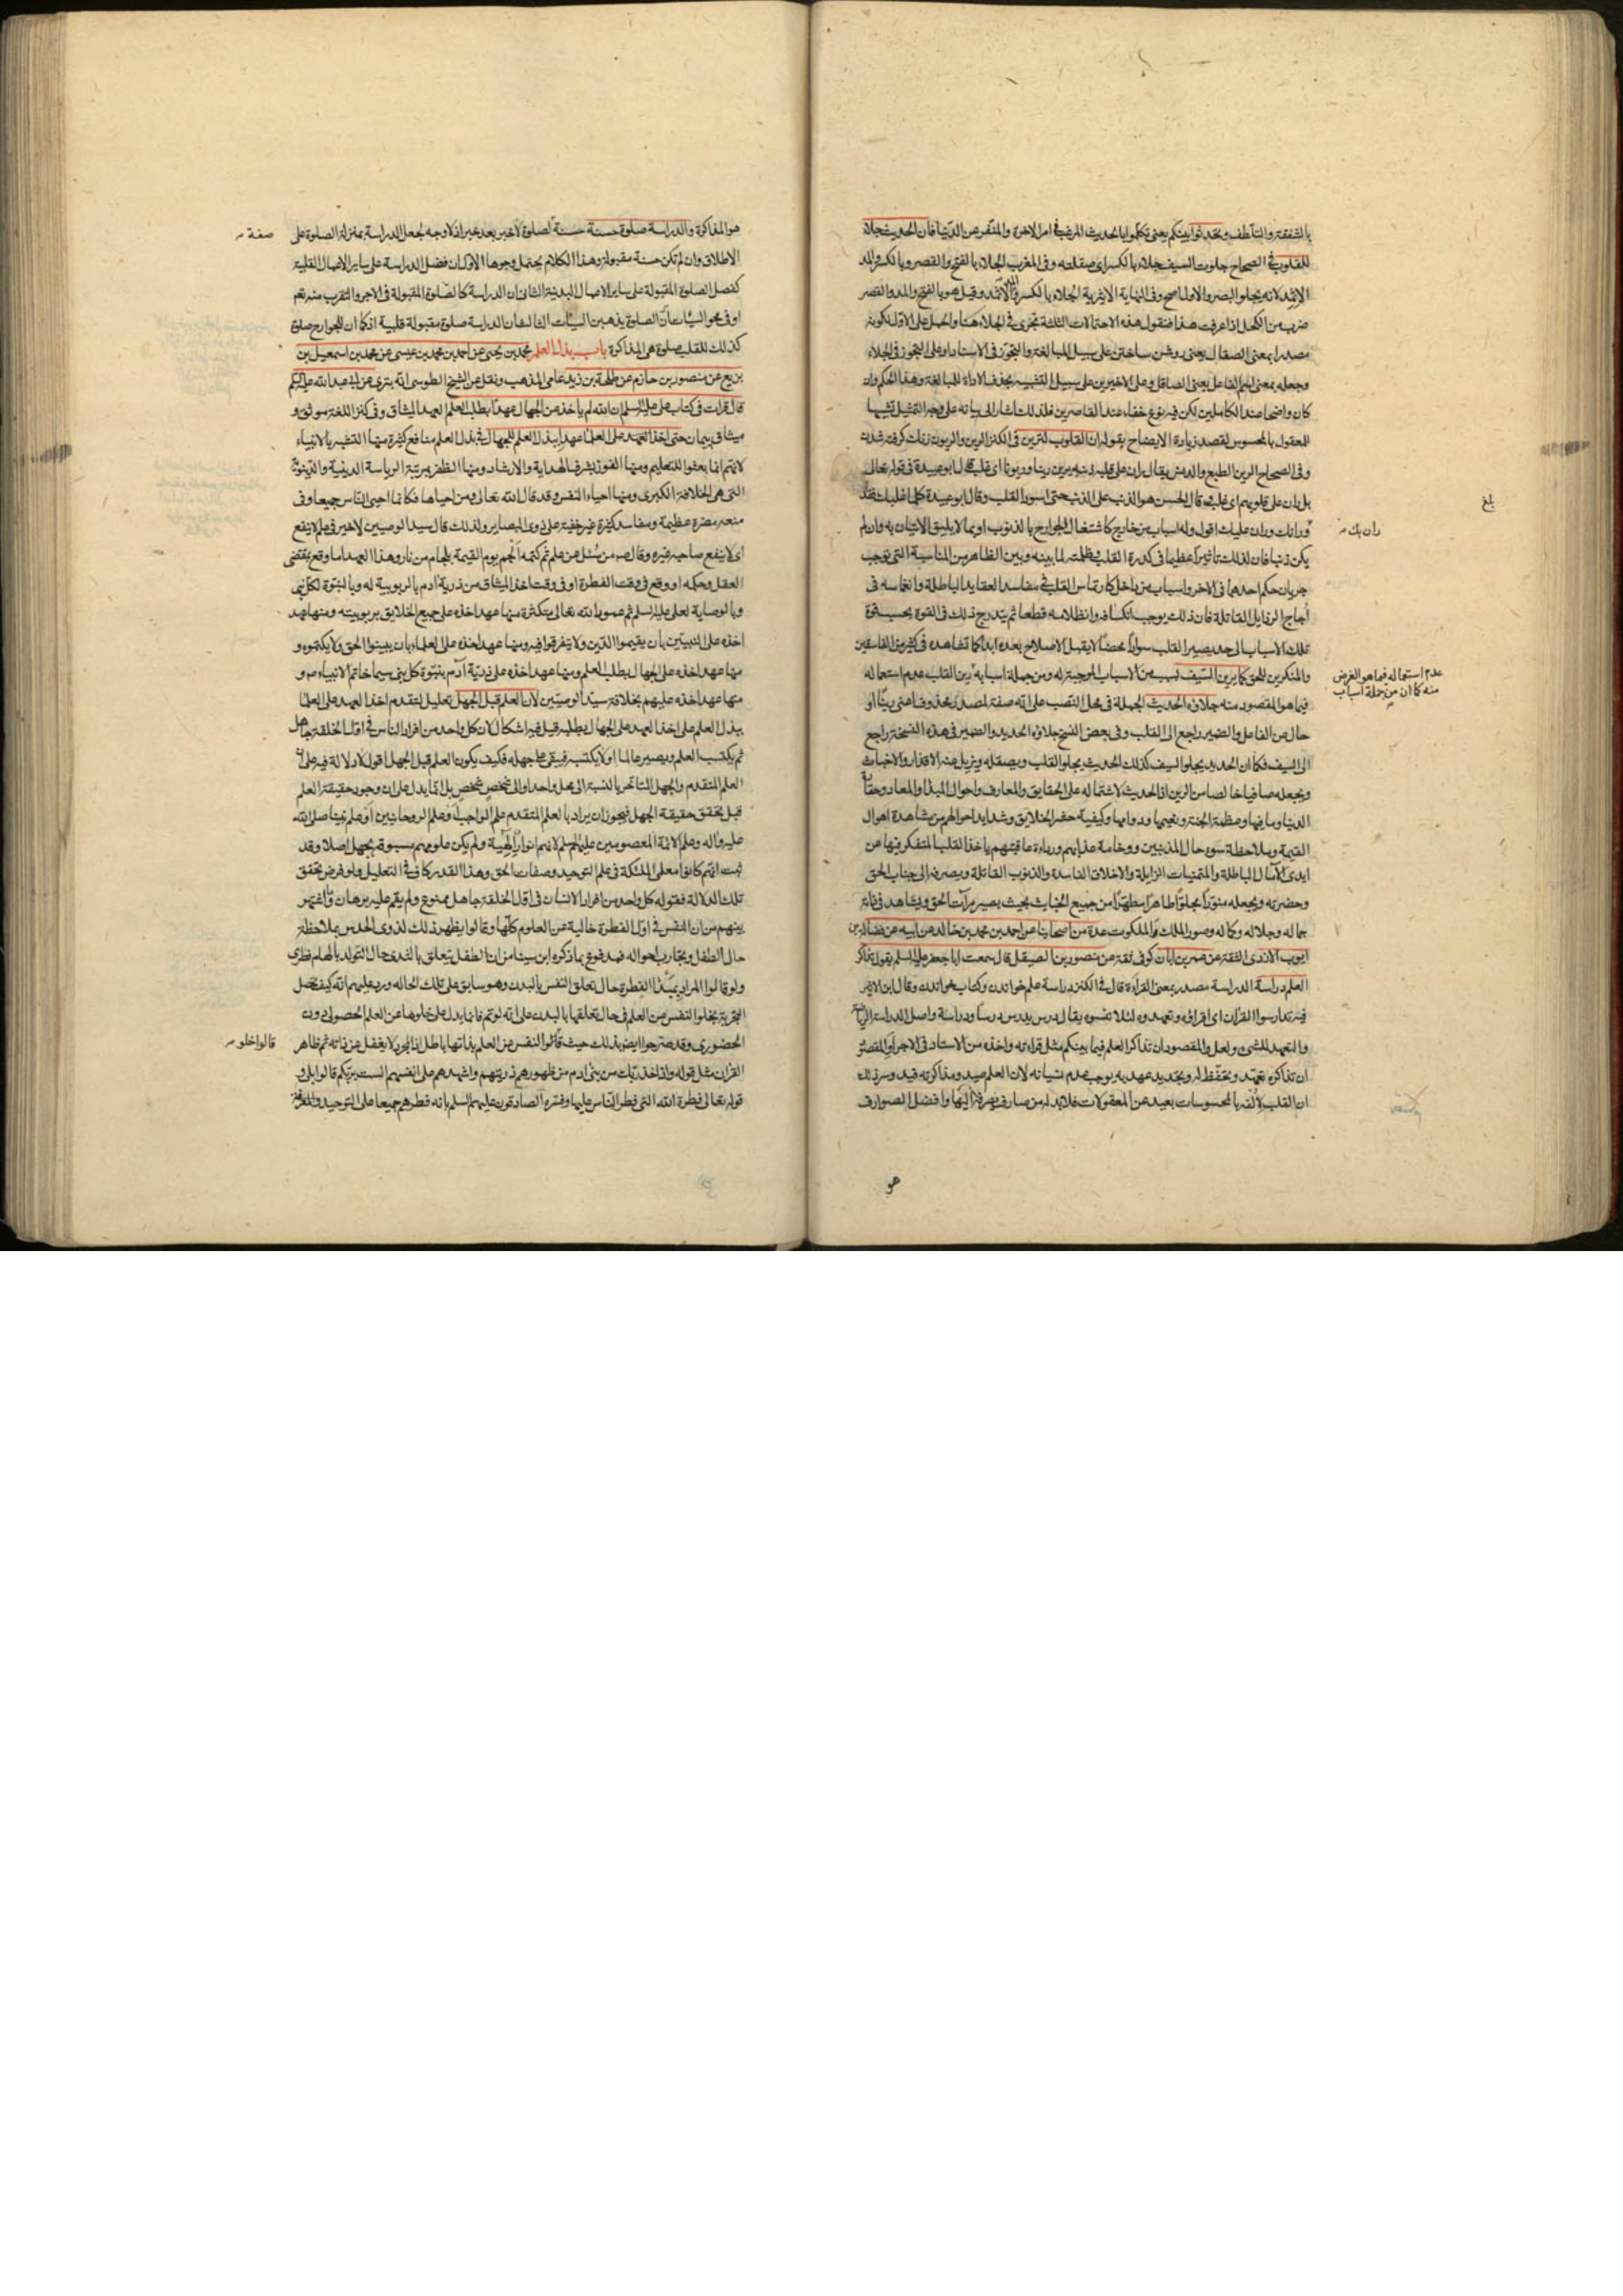 بالشفقة والتلطف وتحدثوا بينكم يعني تكلموا بالحديث المرغب في امر الاخرة والمنفر عن الدنيا فان الحديث جلاء
للقلوب في الصحاح جلوت السيف جلاء بالكسر اي صقلته وفي المغرب الجلاء بالفتح والقصر وبالكسر والمد
الاثمد لانه يجلو البصر والاول اصح وفي النهاية الاثيرية الجلاء بالكسر والمد الاثمد وقيل هو بالفتح والمد والقصر
ضرب من الكحل اذا عرفت هذا فنقول هذه الاحتمالات الثلثة تجري في الجلاء هنا والحمل على الاول لكونه
مصدرا بمعنى الصقال يعني روشن ساختن على سبيل المبالغة والتجوز في الاسناد او على التجوز في الجلاء
وجعله بمعنى اسم الفاعل يعني الصاقل وعلى الاخيرين على سبيل التشبيه بحذف الاداة للمبالغة وهذا الحكم وان
كان واضحا عند الكاملين لكن فيه نوع خفاء عند القاصرين فلذلك اشار الى بيانه على وجه التمثيل تشبيها
للمعقول بالمحسوس لقصد زيادة الايضاح بقوله ان القلوب لترين في الكنز الرين والريون زنك كرفته شدن
وفي الصحاح الرين الطبع والدنس يقال ران على قلبه ذنبه يرين رينا وريونا اي غلب قال ابو عبيدة في قوله تعالى
بل ران على قلوبهم اي غلب وقال الحسن هو الذنب على الذنب حتى اسود القلب وقال ابو عبيدة كلما غلبك فقد
ورانك وران عليك اقول وله اسباب من خارج كاشتغال الجوارح بالذنوب او بما لا يليق الاتيان به وان لم
يكن ذنبا فان لذلك تاثيرا عظيما في كدرة القلب وظلمته لما بينه وبين الظاهر من المناسبة التي توجب
جريان حكم احدهما في الاخر واسباب من داخل كارتماس القلب في مفاسد العقايد الباطلة وانغماسه في
اجاج الرذايل القاتلة فان ذلك يوجب انكسافه وانظلامه قطعا ثم يتدرج ذلك في القوة بحسب قوة
تلك الاسباب الى حد يصير القلب سوادا محضا لا يقبل الاصلاح بعده ابدا كما تشاهده في كثير من الفاسقين
والمنكرين للحق كما يرين السيف لسبب من الاسباب الموجبة له ومن جملة اسبابه رين القلب عدم استعماله
فيما هو المقصود منه جلاؤه الحديث الجملة في محل النصب على انه صفة لمصدر محذوف اعني رينا او
حال من الفاعل والضمير راجع الى القلب وفي بعض النسخ جلاؤه الحديد والضمير في هذه النسخة راجع
الى السيف فكما ان الحديد يجلو السيف كذلك الحديث يجلو القلب ويصقله ويزيل عنه الاقذار والاخباث
ويجعله صافيا خالصا من الرين اذ الحديث لاشتماله على الحقايق والمعارف واحوال المبدأ والمعاد وحقارة
الدنيا وما فيها وعظمة الجنة ونعيمها ودوامها وكيفية حشر الخلايق وشدايد احوالهم من مشاهدة اهوال
القيمة وملاحظة سوء حال المذنبين ووخامة عذابهم ورداءة عاقبتهم ياخذ القلب المتفكر فيها من
ايدي الآمال الباطلة والمتمنيات الزايلة والاخلاق الفاسدة والذنوب القاتلة ويصرفه الى جناب الحق
وحضرته ويجعله منورا مجلوا طاهرا مطهرا من جميع الخبايث بحيث يصير مرآت الحق ويشاهد في ذاته
جماله وجلاله وكماله وصور الملك والملكوت عدة من اصحابنا عن احمد بن محمد بن خالد عن ابيه عن فضالة بن
ايوب الازدي الثقة عن عمر بن ابان كوفي ثقة عن منصور بن الصيقل قال سمعت ابا جعفر عليه السلم يقول تذاكر
العلم دراسة الدراسة مصدر بمعنى القراءة قال في الكنز دراسة علم خواندن وكتاب خواندن وقال ابن الاثير
فيه تدارسوا القران اي اقرؤه وتعهدوه لئلا تنسوه يقال درس يدرس درسا ودراسة واصل الدراسة الرياضة
والتعهد للشيء ولعل المقصود ان تذاكر العلم فيما بينكم مثل قراءته واخذه من الاستاد في الاجر او المقصود
ان تذاكره تعهد وتحفظ له وتجديد عهد به يوجب عدم نسيانه لان العلم صيد ومذاكرته قيد وسر ذلك
ان القلب لالفه بالمحسوسات بعيد عن المعقولات فلابد له من صارف يصرفه اليها وافضل الصوارف
هو
بلغ
ران بك
عدم استعماله فيما هو الغرض
منه كما ان من جملة اسباب
هو المذاكرة والدراسة صلوة حسنة حسنة لصلوة لا خبر بعد خبر اذ لا وجه لجعل الدراسة بمنزلة الصلوة على
الاطلاق وان لم تكن حسنة مقبولة وهذا الكلام يحتمل وجوها الاول ان فضل الدراسة على ساير الاعمال القلبية
كفضل الصلوة المقبولة على ساير الاعمال البدنية الثاني ان الدراسة كالصلوة المقبولة في الاجر والتقرب منه تعم
او في محو السيئات لان الصلوة يذهبن السيئات الثالث ان الدراسة صلوة مقبولة قلبية اذ كما ان للجوارح صلوة
كذلك للقلب صلوة هي المذاكرة باب بذل العلم محمد بن يحيى عن احمد بن محمد بن عيسى عن محمد بن اسمعيل بن
بزيع عن منصور بن حازم عن طلحة بن زيد عامي المذهب ونقل عن الشيخ الطوسي انه بتري عن ابي عبد الله عليه السلم
قال قرات في كتاب علي عليه السلم ان الله لم ياخذ من الجهال عهدا بطلب العلم العهد الميثاق وفي كنز اللغة موثق و
ميثاق پيمان حتى اخذ العهد على العلما عهدا ببذل العلم للجهال في بذل العلم منافع كثيرة منها التشبه بالانبياء
لانهم انما بعثوا للتعليم ومنها الفوز بشرف الهداية والارشاد ومنها الظفر بمرتبة الرياسة الدينية والدنيوية
التي هي الخلافة الكبرى ومنها احياء النفس وقد قال الله تعالى ومن احياها فكانما احيى الناس جميعا وفي
منعه مضرة عظيمة ومفاسد كثيرة غير خفية على ذوي البصاير ولذلك قال سيد الوصيين لاخير في علم لا ينفع
اي لا ينفع صاحبه غيره وقال ص من سئل عن علم ثم كتمه الجم يوم القيمة بلجام من نار وهذا العهد اما وقع بمقتضى
العقل وحكمه او وقع في وقت الفطرة او في وقت اخذ الميثاق من ذرية ادم بالربوبية له وبالنبوة لكل نبي
وبالوصاية لعلي عليه السلم ثم عهود الله تعالى متكثرة منها عهد اخذه على جميع الخلايق بربوبيته ومنها عهد
اخذه على النبيين بان يقيموا الدين ولا يتفرقوا فيه ومنها عهد اخذه على العلماء بان يبينوا الحق ولا يكتموه و
منها عهد اخذه على الجهال بطلب العلم ومنها عهد اخذه على ذرية آدم بنبوة كل نبي سيما خاتم الانبياء ص و
منها عهد اخذه عليهم بخلافة سيد الوصيين لان العلم قبل الجهل تعليل لتقدم اخذ العهد على العلما
ببذل العلم على اخذ العهد على الجهال بطلبه قيل فيه اشكال لان كل واحد من افراد الناس في اول الخلقة جاهل
ثم يكتسب العلم ويصير عالما او لا يكتسب فيبقى على جهله فكيف يكون العلم قبل الجهل اقول لا دلالة فيه على ان
العلم المتقدم والجهل المتاخر بالنسبة الى محل واحد او الى شخص شخص بل انما يدل على ان وجود حقيقة العلم
قبل تحقق حقيقة الجهل فيجوز ان يراد بالعلم المتقدم علم الواجب او علم الروحانيين او علم نبينا صلى الله
عليه وآله وعلم الائمة المعصومين عليهم السلم لانهم انوار الهية ولم يكن علومهم مسبوقة بجهل اصلا وقد
ثبت انهم كانوا معلمي الملئكة في علم التوحيد وصفات الحق وهذا القدر كاف في التعليل ولو فرض تحقق
تلك الدلالة فقوله كل واحد من افراد الانسان في اول الخلقة جاهل ممنوع ولم يقم عليه برهان وما اشتهر
بينهم من ان النفس في اول الفطرة خالية عن العلوم كلها وقالوا يظهر ذلك لذوي الحدس بملاحظة
حال الطفل وتجارب احواله فمدفوع بما ذكره ابن سينا من ان الطفل يتعلق بالثدي حال التولد بالهام فطري
ولو قالوا المراد بمبدأ الفطرة حال تعلق النفس بالبدن وهو سابق على تلك الحاله ورد عليهم انه كيف تحصل
التجربة بخلو النفس من العلم في حال تعلقها بالبدن على انه لو تم فانما يدل على خلوها عن العلم الحصولي دون
الحضوري وقد صرحوا ايضا بذلك حيث قالوا النفس عن العلم بذاتها باطل اذ المجرد لا يغفل عن ذاته ثم ظاهر
القران مثل قوله واذ اخذ ربك من بني ادم من ظهورهم ذريتهم واشهدهم على انفسهم الست بربكم قالوا بلى و
قوله تعالى فطرة الله التي فطر الناس عليها وفسره الصادقون عليهم السلم بانه فطرهم جميعا على التوحيد والمعرفة
صفة
قالوا خلو